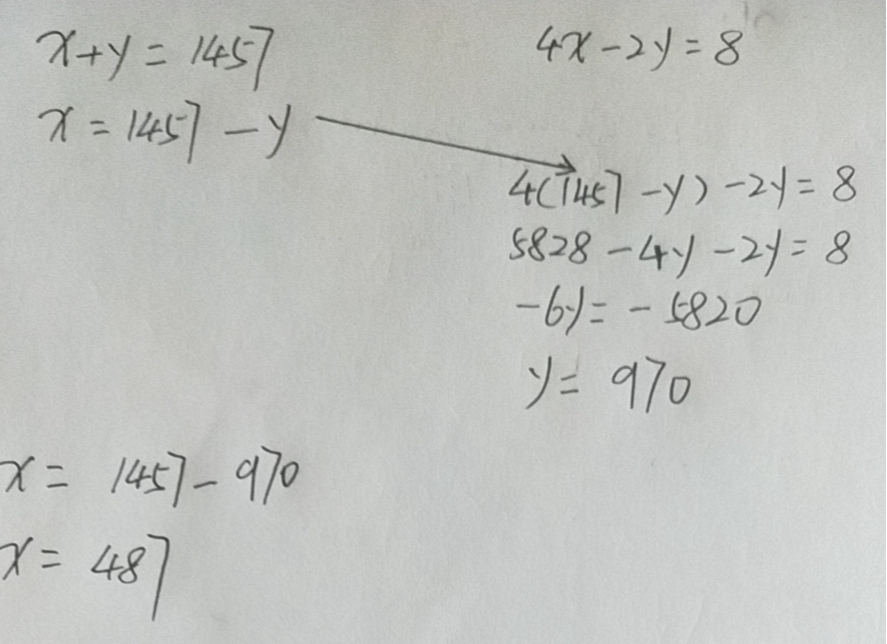 x+y=1457
4x-2y=8
x=1457-y
4(1457-y)-2y=8
5828-4y-2y=8
-6y=-5820
y=970
x=1457-970
x=487